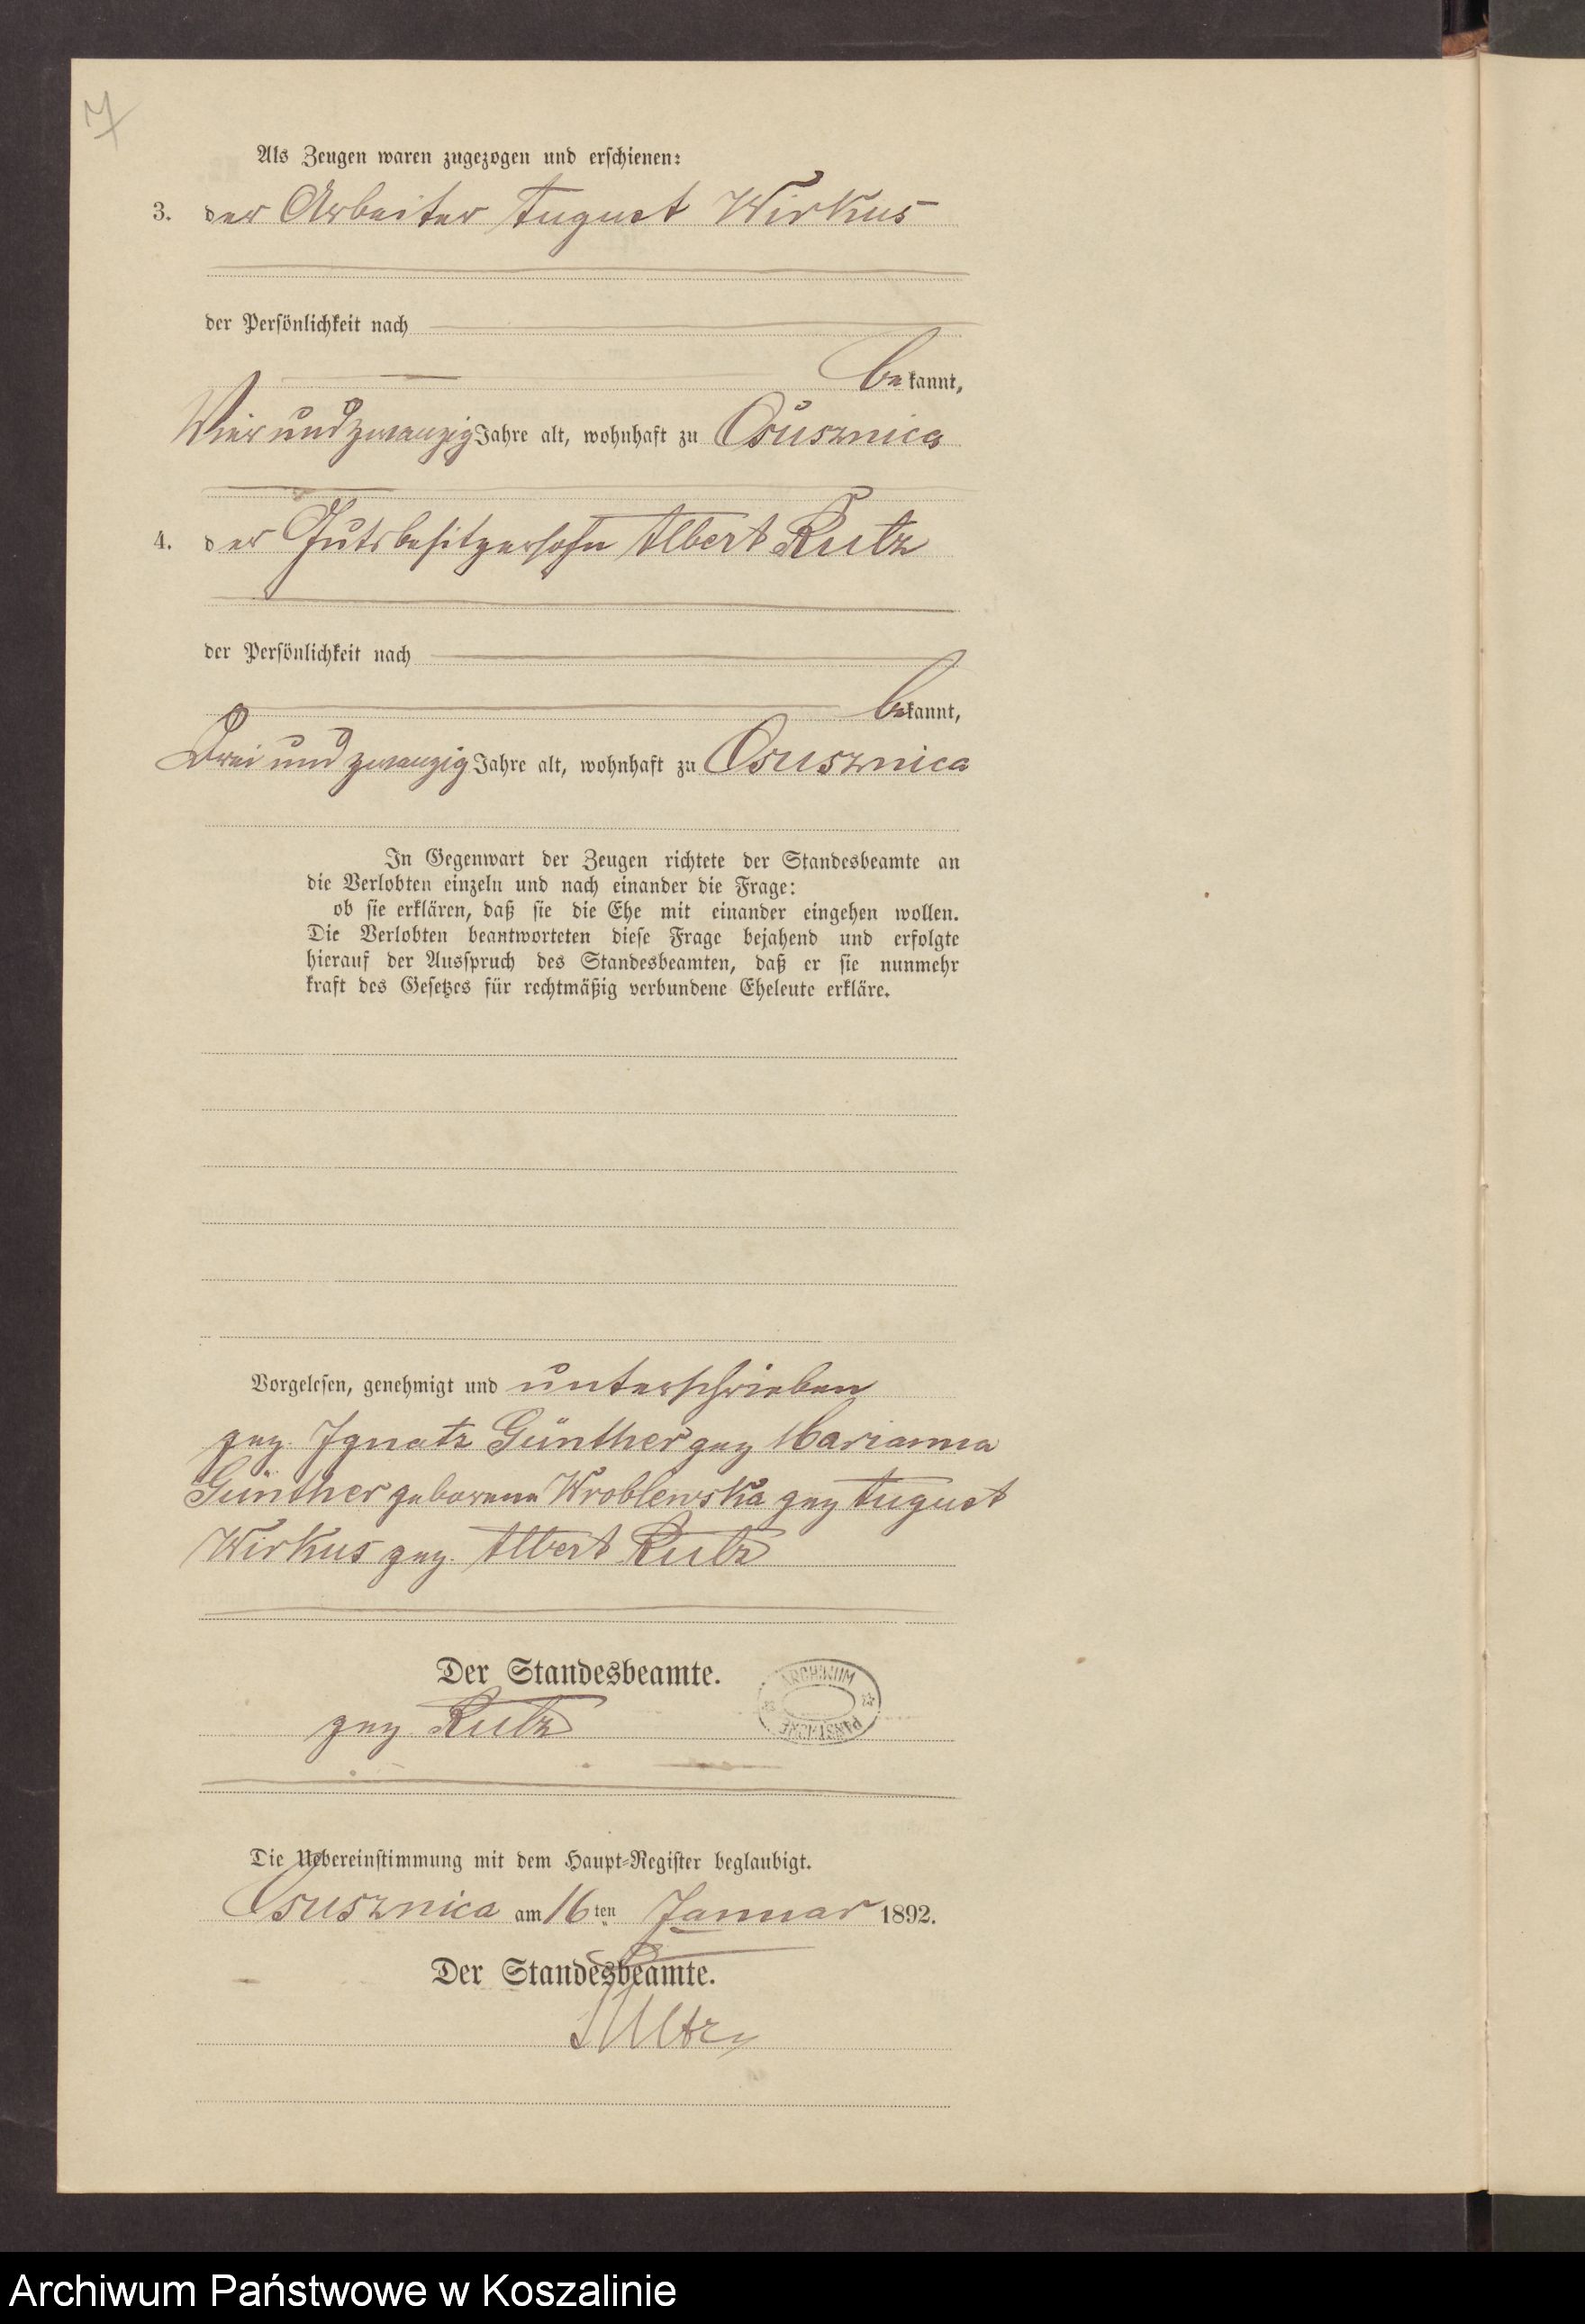 7
Als Zeugen waren zugezogen und erschienen:
3. der Arbeiter August Wirkus
der Persönlichkeit nach
bekannt,
Vier und zwanzig Jahre alt, wohnhaft zu Osusznica
4. der Gutsbesitzersohn Albert Rutz
der Persönlichkeit nach
bekannt,
Drei und zwanzig Jahre alt, wohnhaft zu Osusznica
In Gegenwart der Zeugen richtete der Standesbeamte an
die Verlobten einzeln und nach einander die Frage:
ob sie erklären, daß sie die Ehe mit einander eingehen wollen.
Die Verlobten beantworteten diese Frage bejahend und erfolgte
hierauf der Ausspruch des Standesbeamten, daß er sie nunmehr
kraft des Gesetzes für rechtmäßig verbundene Eheleute erkläre.
Vorgelesen, genehmigt und unterschrieben
gez. Ignatz Günther gez Marianna
Günther geborene Wroblewska gez August
Wirkus gez. Albert Rutz
Der Standesbeamte.
ARCHIWUM
PAŃSTWOWE
gez Rutz
Die Uebereinstimmung mit dem Haupt-Register beglaubigt.
Osusznica am 16 ten Januar 1892.
Der Standesbeamte.
Rutz
Archiwum Państwowe w Koszalinie